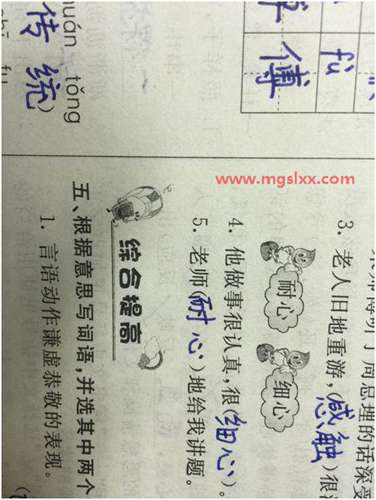 fù
傅
uán tǒng
传 统)
总理的话深受
3. 老人旧地重游,(感触)很
耐心 细心
4. 他做事很认真,很(细心)。
5. 老师(耐心)地给我讲题。
综合提高
五、根据意思写词语,并选其中两个
1. 言语动作谦虚恭敬的表现。
www.mgslxx.com